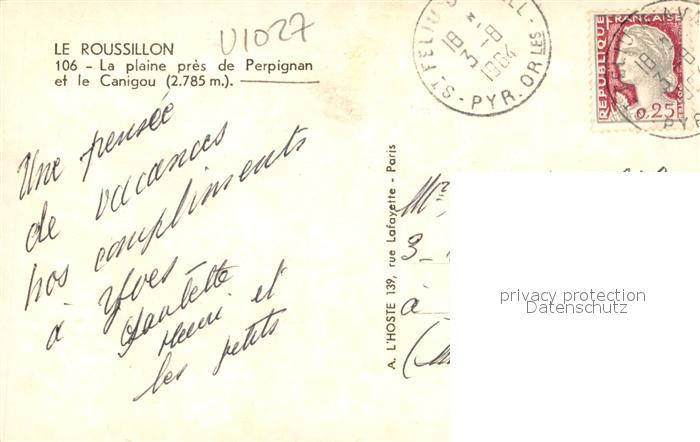 LE ROUSSILLON
106 - La plaine près de Perpignan
et le Canigou (2.785 m.).
U1027
Une pensée
de vacances
nos compliments
à Yves -
Paulette
Henri et
les petits
A. L'HOSTE 139, rue Lafayette - Paris
ST FELIU
18 H
3 - 8
1964
PYR. ORLES
REPUBLIQUE FRANÇAISE
0,25
18 H
PYR
3 -
à
privacy protection
Datenschutz